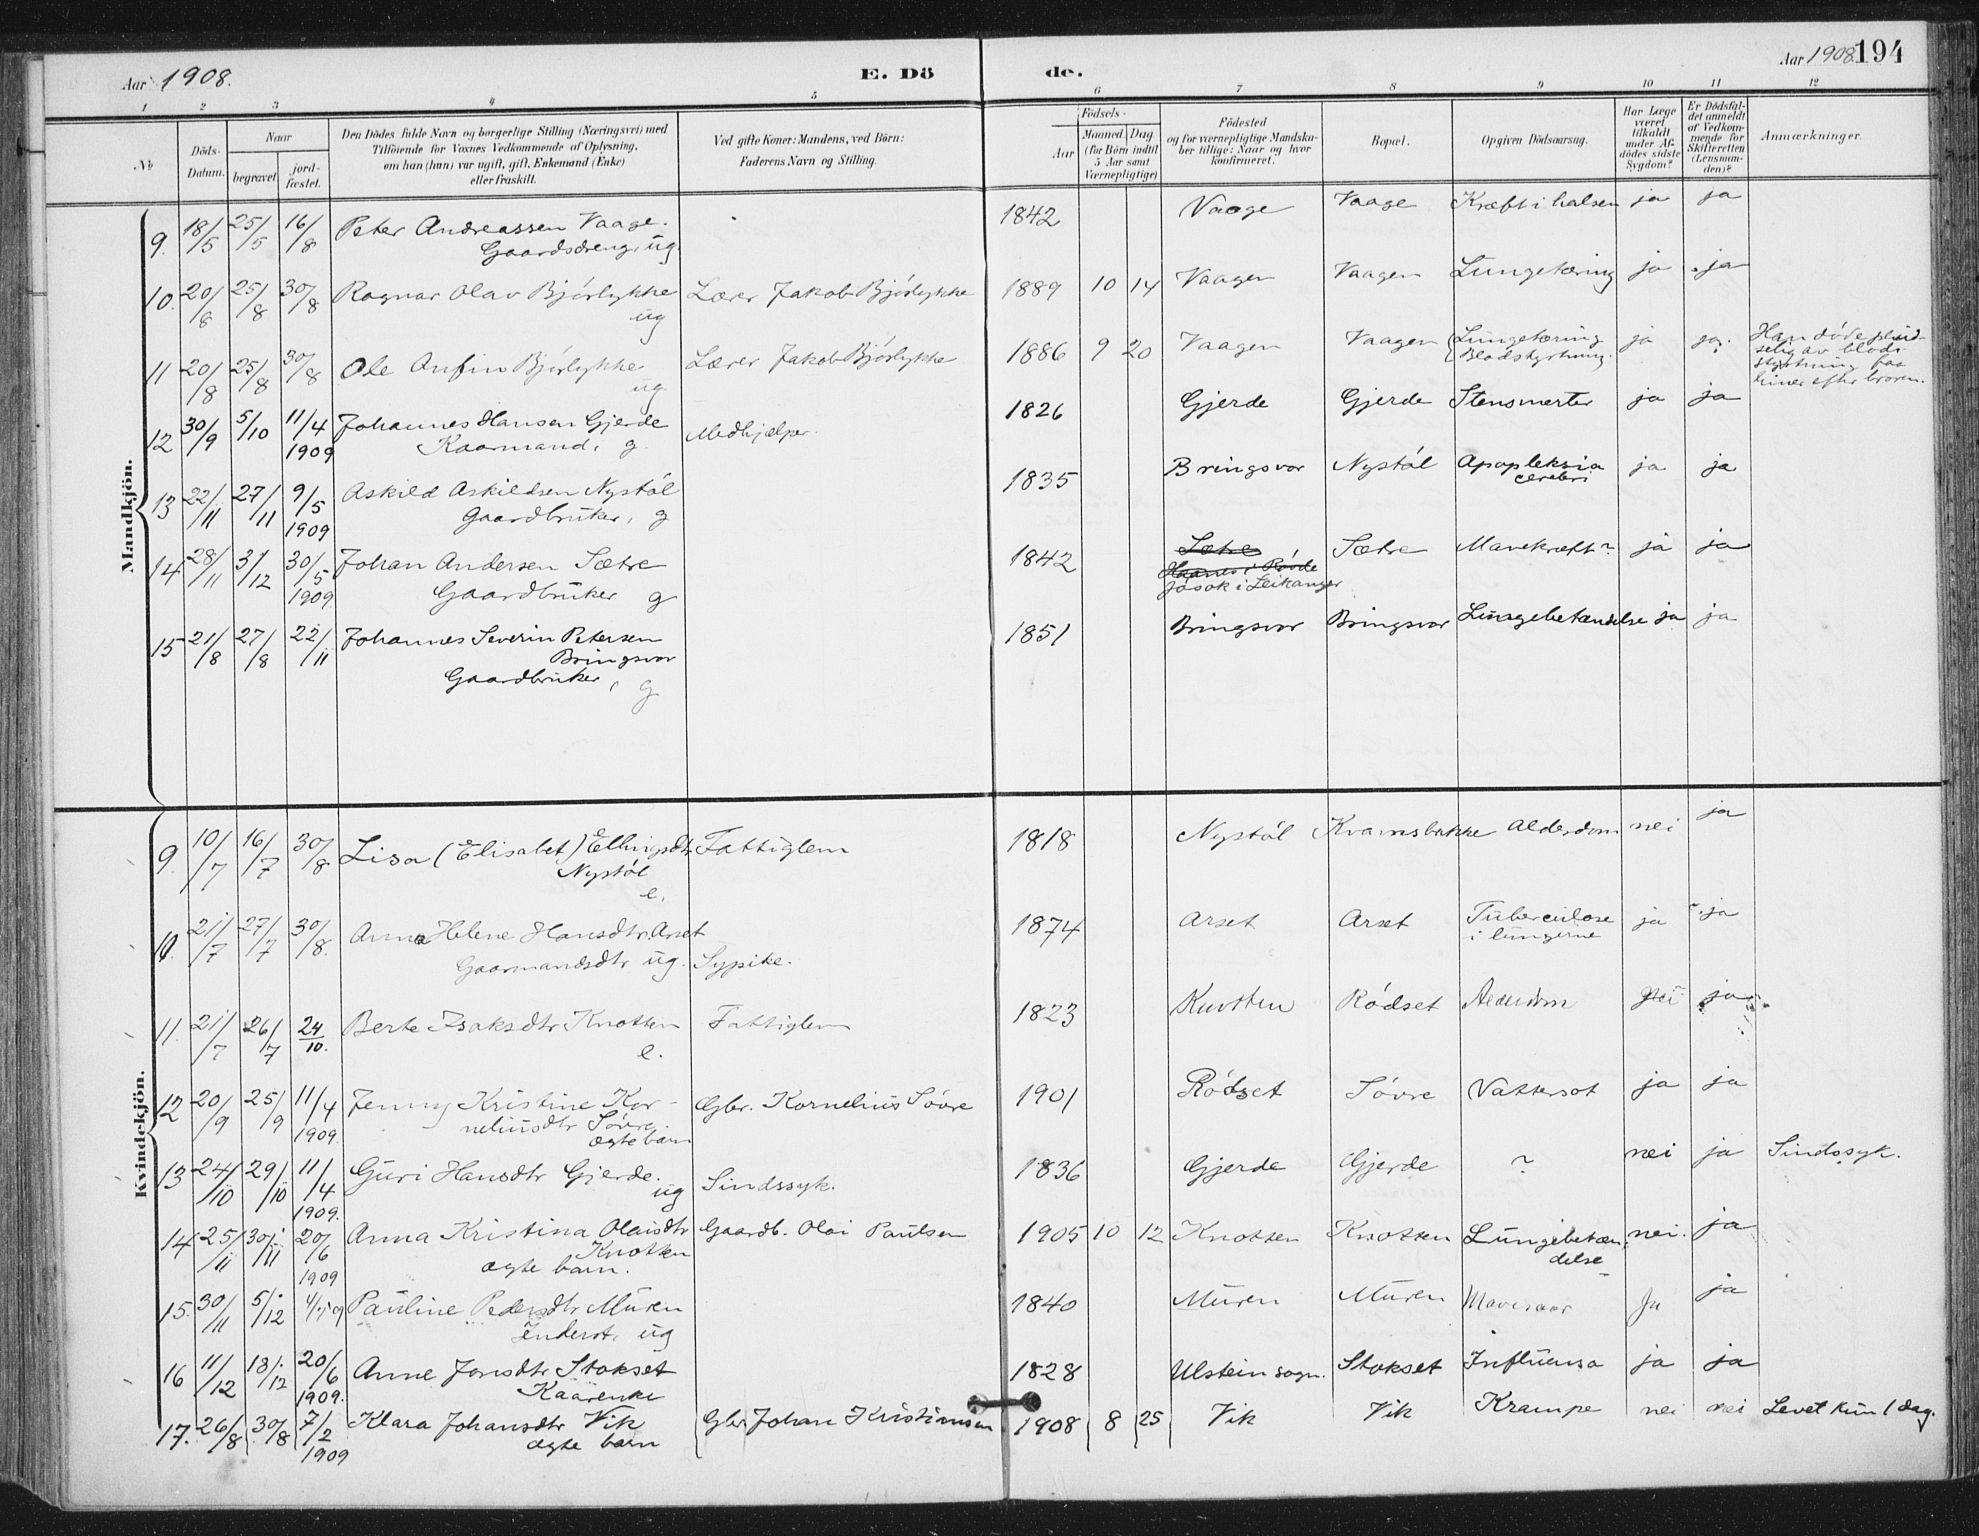 Aar 1908. E. Dö de. Aar 1908. 194
1 2 3 4 5 6 7 8 9 10 11 12
No Döds-Datum. Naar begravet. jord-fæstet. Den Dödes fulde Navn og borgerlige Stilling (Næringsvei) med Tilföiende for Voxnes Vedkommende af Oplysning, om han (hun) var ugift, gift, Enkemand (Enke) eller fraskilt. Ved gifte Koner: Mandens, ved Börn: Faderens Navn og Stilling. Födsels- Aar Maaned. Dag (for Börn indtil 5 Aar samt Værnepligtige) Födested og for værnepligtige Mandska-ber tillige: Naar og hvor konfirmeret. Bopæl. Opgiven Dödsaarsag. Har Læge været tilkaldt under Af-dödes sidste Sygdom? Er Dödsfal-det anmeldt af Vedkom-mende for Skifteretten (Lensman-den)? Anmærkninger.
Mandkjön.
9. 18/5 25/5 16/8 Peter Andreassen Vaage. 1842 Vaage Vaage Kræft i halsen ja ja
Gaardsdreng, ug.
10. 20/8 25/8 30/8 Ragnar Olav Bjørlykke Lærer Jakob Bjørlykke 1889 10 14 Vaagen Vaagen Lungetæring ja ja
ug
11 20/8 25/8 30/8 Ole Anfin Bjørlykke Lærer Jakob Bjørlykke 1886 9 20 Vaagen Vaagen Lungetæring ja ja. Han døde plud-
ug Blodstyrtning. selig av blod-
styrtning faa
timer efter broren.
12 30/9 5/10 11/4 1909 Johannes Hansen Gjerde Medhjælper. 1826 Gjerde Gjerde Stensmerter ja ja
Kaarmand, g
13 22/11 27/11 9/5 1909 Askild Askildsen Nystøl 1835 Bringsvor Nystøl Apopleksia ja ja
Gaardbruker, g cerebri
14 28/11 3/12 30/5 1909 Johan Andersen Sætre 1842 Sætre Sætre Mavekræft? ja ja
Gaardbruker g Haanes i Rovde
Jøsok i Leikanger
15 21/8 27/8 22/11 Johannes Severin Petersen 1851 Bringsvor Bringsvor Lungebetændelse ja ja
Bringsvor
Gaardbruker, g
Kvindekjön.
9. 10/7 16/7 30/8 Lisa (Elisabet) Ellingsdtr Fattiglem 1818 Nystøl Kvamsbakke Alderdom nei ja
Nystøl
e.
10. 21/7 27/7 30/8. Anna Helene Hansdtr. Arset 1874 Arset Arset Tuberculose ja ja
Gaarmandsdtr ug. Sypike. i lungerne
11. 21/7 26/7 24/10. Berte Isaksdtr Knotten Fattiglem 1823 Knotten Rødset Alderdom nei ja
e.
12 20/9 25/9 11/4 1909. Jenny Kristine Kor- Gbr. Kornelius Søvre 1901 Rødset Søvre Vattersot ja ja
neliusdtr Søvre.
ægte barn
13 24/10 29/10 11/4 1909. Guri Hansdtr Gjerde. Sindssyk. 1836 Gjerde Gjerde ? nei ja Sindssyk.
ug
14 25/11 30/11 20/6 1909 Anna Kristina Olaisdtr Gaardb. Olai Paulsen 1905 10 12 Knotten Knotten Lungebetæn- nei. ja
Knotten delse
ægte barn.
15. 30/11 5/12 Pauline Pedersdtr Muren 1840 Muren Muren Mavesaar Ja ja
Inderst, ug
16 11/12 18/12 20/6 1909. Anne Jonsdtr Stokset 1828 Ulstein sogn. Stokset Influensa ja ja
Kaarenke
17. 26/8 30/8 7/2 1909 Klara Johansdtr Vik Gbr Johan Kristiansen 1908 8 25 Vik Vik Krampe nei nei Levet kun 1 dag.
ægte barn